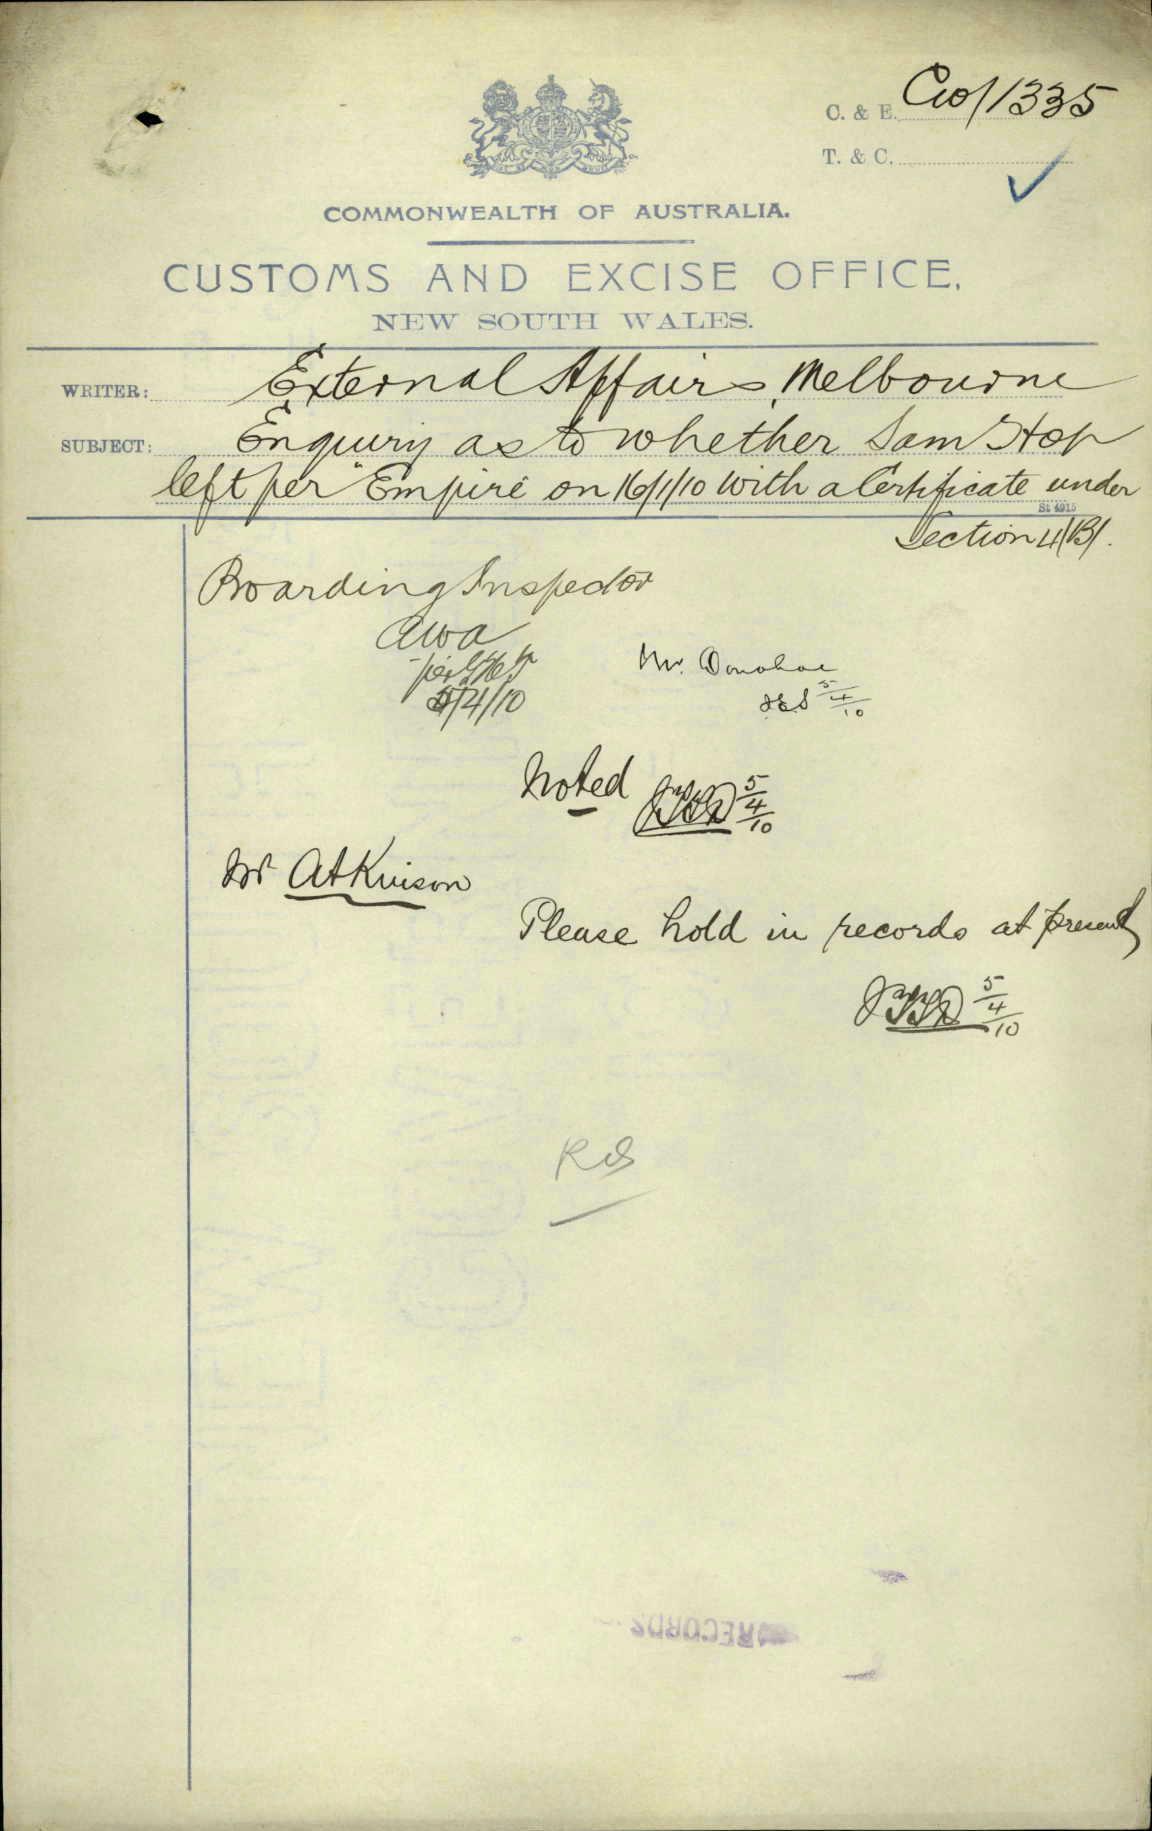 C. & E. C10/1335
T. & C.
COMMONWEALTH OF AUSTRALIA.
CUSTOMS AND EXCISE OFFICE,
NEW SOUTH WALES.
WRITER: External Affairs, Melbourne
SUBJECT: Enquiry as to whether Sam Hop
left per "Empire" on 16/1/10 with a Certificate under
St 4915
Section 4(B).
Boarding Inspector
AWA
per
5/4/10
Mr. Donohoe
5/4/10
Noted 5/4/10
Mr Atkinson
Please hold in records at present
5/4/10
RECORDS